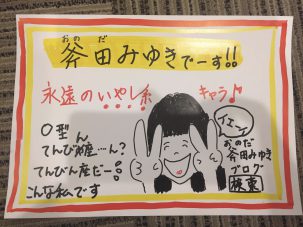 おのだ
斧田みゆきでーす!!
永遠のいやし系
キャラ♪
イエーイ
O型ん
てんびん座だー!
こんな私です
おのだ
斧田みゆき
ブログ
検索